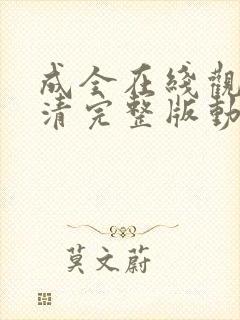 成全在綫觀
清完整版動
莫文蔚